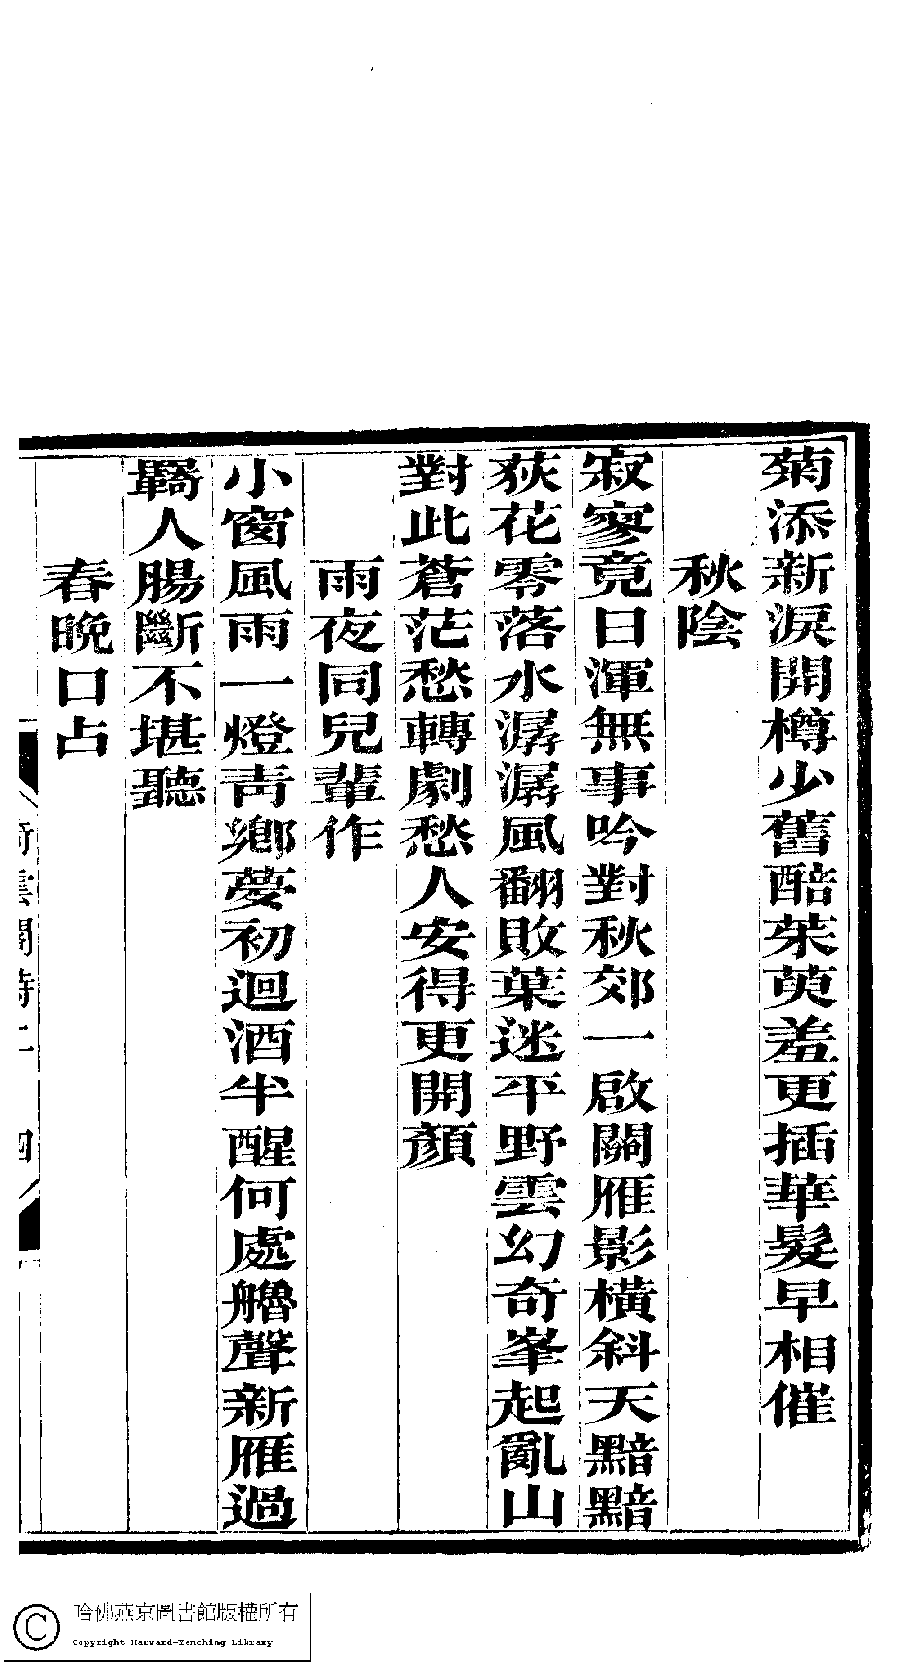 菊添新淚開樽少舊醅茱萸羞更插華髮早相催
秋陰
寂寥竟日渾無事吟對秋郊一啟關雁影橫斜天黯黯
荻花零落水潺潺風翻敗葉迷平野雲幻奇峯起亂山
對此蒼茫愁轉劇愁人安得更開顏
雨夜同兒輩作
小窗風雨一燈靑鄉夢初迴酒半醒何處艣聲新雁過
羇人腸斷不堪聽
春晚口占
雲閣詩二 四
哈佛燕京圖書館版權所有
Copyright Harvard-Yenching Library